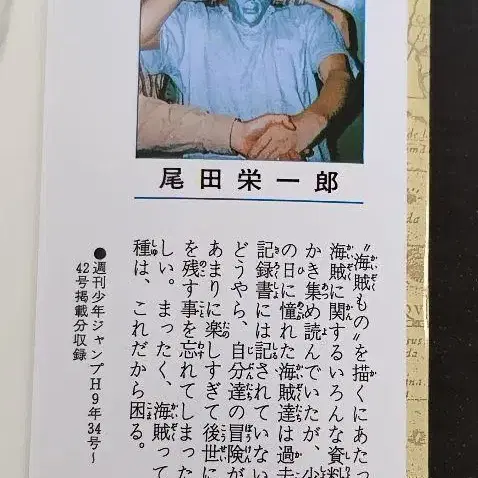 尾田栄一郎
〝海賊もの〟を描くにあたっ
海賊に関するいろんな資料
かき集め読んでいたが、少
の日に憧れた海賊達は過去
記録書には記されていない
どうやら、自分達の冒険が
あまりに楽しすぎて後世に
を残す事を忘れてしまった
しい。まったく、海賊って
種は、これだから困る。
●週刊少年ジャンプH9年34号〜
42号掲載分収録